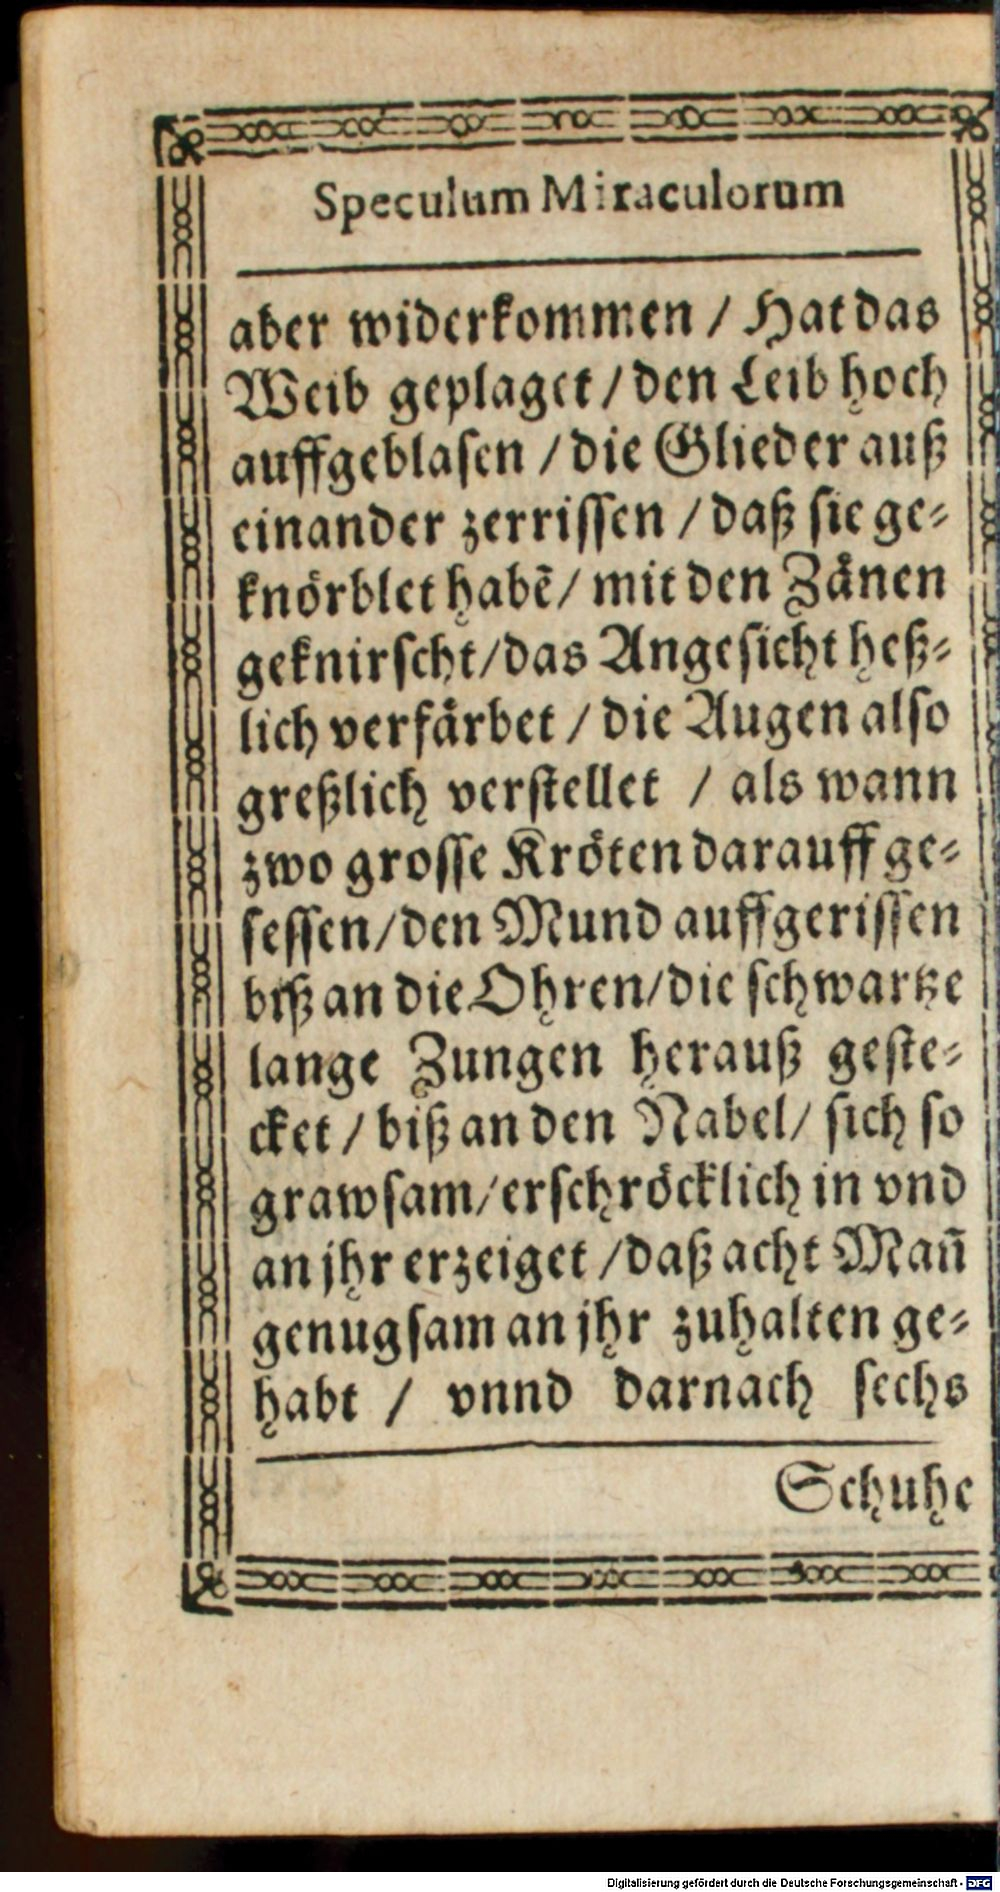 Speculum Miraculorum
aber widerkommen / Hat das
Weib geplaget / den Leib hoch
auffgeblasen / die Glieder auß
einander zerrissen / daß sie ge-
knörblet habẽ / mit den Zänen
geknirscht / das Angesicht heß-
lich verfärbet / die Augen also
greßlich verstellet / als wann
zwo grosse Kröten darauff ge-
sessen / den Mund auffgerissen
biß an die Ohren / die schwartze
lange Zungen herauß geste-
cket / biß an den Nabel / sich so
grawsam / erschröcklich in vnd
an jhr erzeiget / daß acht Mañ
genugsam an jhr zuhalten ge-
habt / vnnd darnach sechs
Schuhe
Digitalisierung gefördert durch die Deutsche Forschungsgemeinschaft - DFG